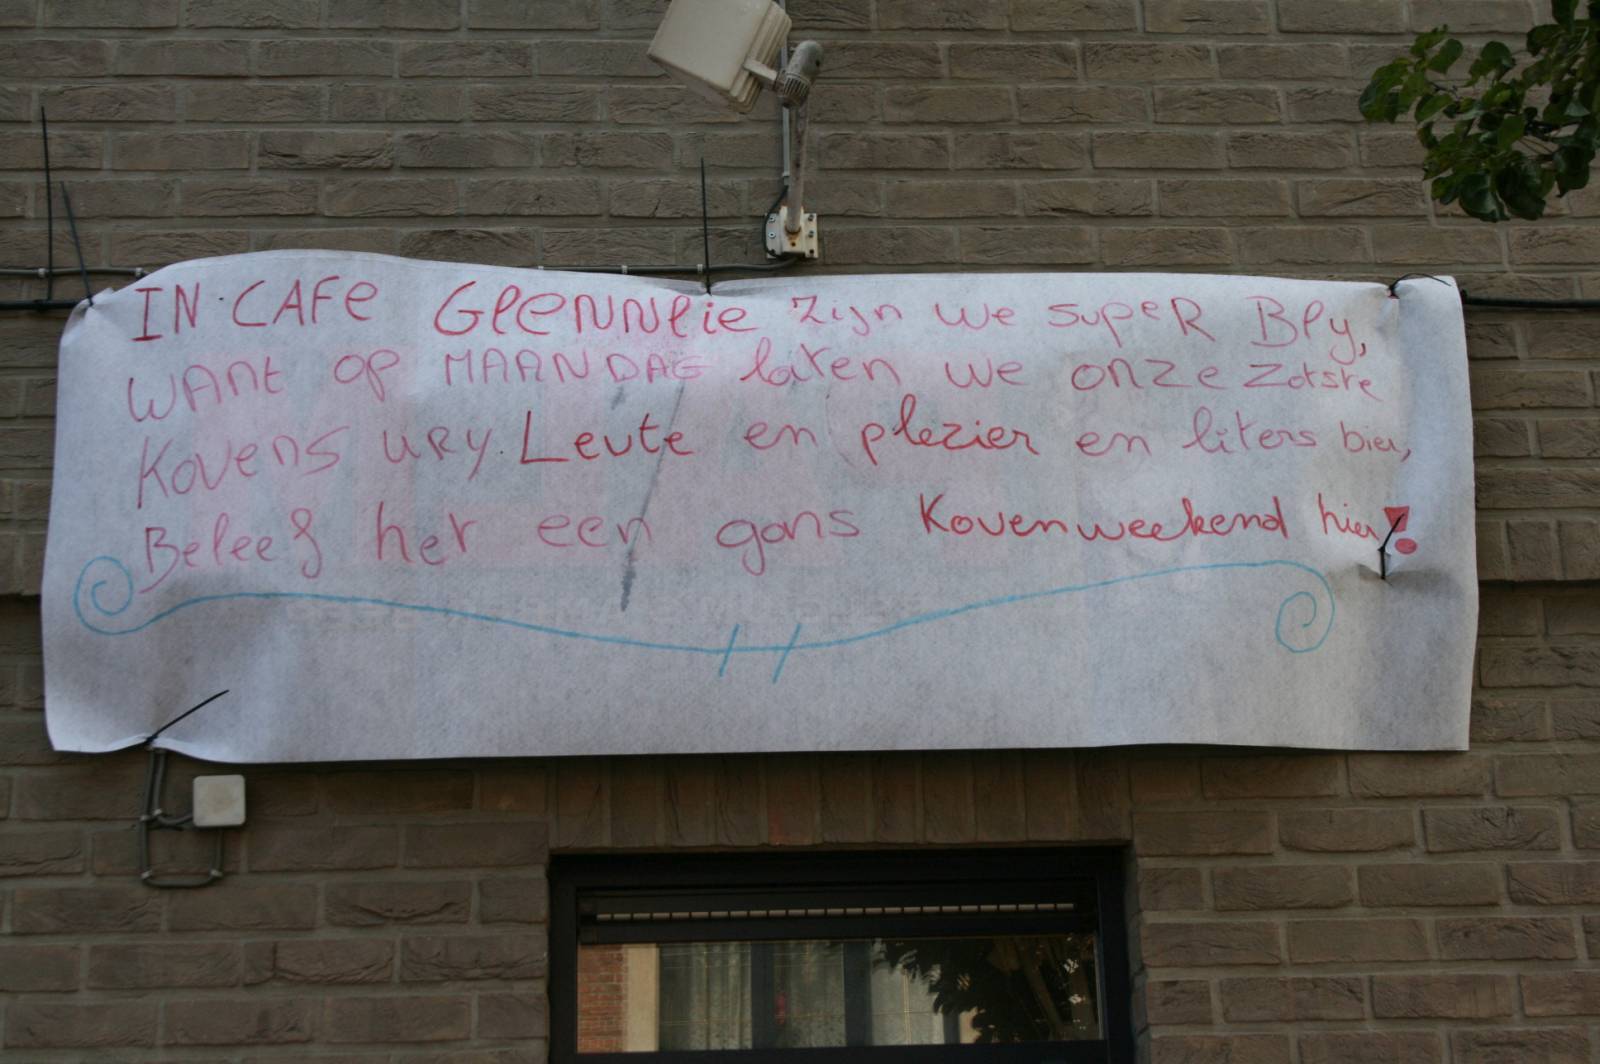 IN CAFE GLENNLIE Zijn we super Bly,
want op MAANDAG laten we onze zotste
Kovens ury. Leute en plezier en liters bier,
Beleef het een gans Kovenweekend hier!